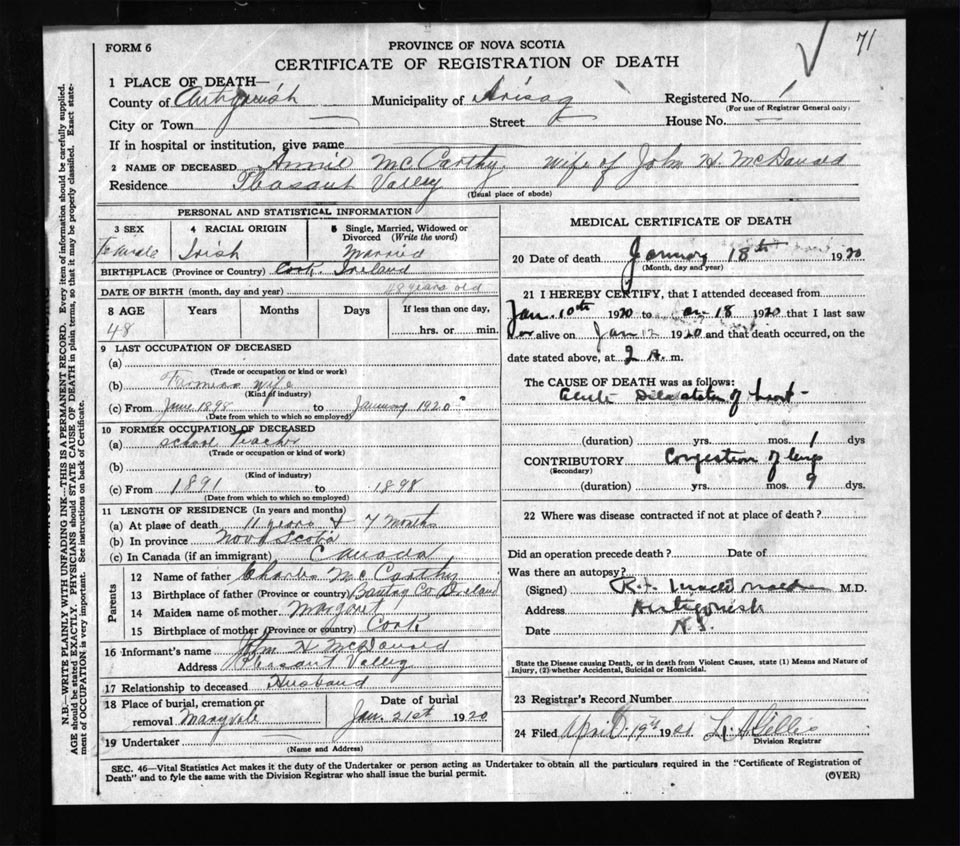 71
FORM 6
PROVINCE OF NOVA SCOTIA
CERTIFICATE OF REGISTRATION OF DEATH
1 PLACE OF DEATH—
County of Antigonish Municipality of Arisag Registered No. 1
(For use of Registrar General only)
City or Town Street House No.
If in hospital or institution, give name
2 NAME OF DECEASED Annie McCarthy wife of John H McDonald
Residence Pleasant Valley
(Usual place of abode)
PERSONAL AND STATISTICAL INFORMATION
3 SEX 4 RACIAL ORIGIN 5 Single, Married, Widowed or Divorced (Write the word)
Female Irish Married
BIRTHPLACE (Province or Country) Cork Ireland
DATE OF BIRTH (month, day and year) 48 years old
8 AGE Years Months Days If less than one day,
48 hrs. or min.
9 LAST OCCUPATION OF DECEASED
(a)
(Trade or occupation or kind or work)
(b) Farmers wife
(Kind of industry)
(c) From June 1898 to January 1920
(Date from which to which so employed)
10 FORMER OCCUPATION OF DECEASED
(a) School Teacher
(Trade or occupation or kind of work)
(b)
(Kind of industry)
(c) From 1891 to 1898
(Date from which to which so employed)
11 LENGTH OF RESIDENCE (In years and months)
(a) At place of death 11 years & 7 months
(b) In province Nova Scotia
(c) In Canada (if an immigrant) Canada
Parents
12 Name of father Charles McCarthy
13 Birthplace of father (Province or Country) Co Ireland
14 Maiden name of mother Margaret
15 Birthplace of mother (Province or country) Cork
16 Informant's name John H McDonald
Address Pleasant Valley
17 Relationship to deceased Husband
18 Place of burial, cremation or removal Maryvale
Date of burial Jan. 21st 1920
19 Undertaker
(Name and Address)
MEDICAL CERTIFICATE OF DEATH
20 Date of death January 18th 1920
(Month, day and year)
21 I HEREBY CERTIFY, that I attended deceased from
Jan. 10th 1920 to Jan. 18 1920 that I last saw
her alive on Jan 12 1920 and that death occurred, on the
date stated above, at 2 A. m.
The CAUSE OF DEATH was as follows:
Acute Dilatation of heart
(duration) yrs. mos. 1 dys
CONTRIBUTORY Congestion of lungs
(Secondary)
(duration) yrs. mos. 9 dys.
22 Where was disease contracted if not at place of death?
Did an operation precede death? Date of
Was there an autopsy?
(Signed) M.D.
Address Antigonish
Date N.S.
State the Disease causing Death, or in death from Violent Causes, state (1) Means and Nature of
Injury, (2) whether Accidental, Suicidal or Homicidal.
23 Registrar's Record Number
24 Filed April 19th 19
Division Registrar
SEC. 46—Vital Statistics Act makes it the duty of the Undertaker or person acting as Undertaker to obtain all the particulars required in the "Certificate of Registration of
Death" and to fyle the same with the Division Registrar who shall issue the burial permit.
(OVER)
N.B.—WRITE PLAINLY WITH UNFADING INK—THIS IS A PERMANENT RECORD. Every item of information should be carefully supplied.
AGE should be stated EXACTLY. PHYSICIANS should STATE CAUSE OF DEATH in plain terms, so that it may be properly classified. Exact state-
ment of OCCUPATION is very important. See instructions on back of Certificate.